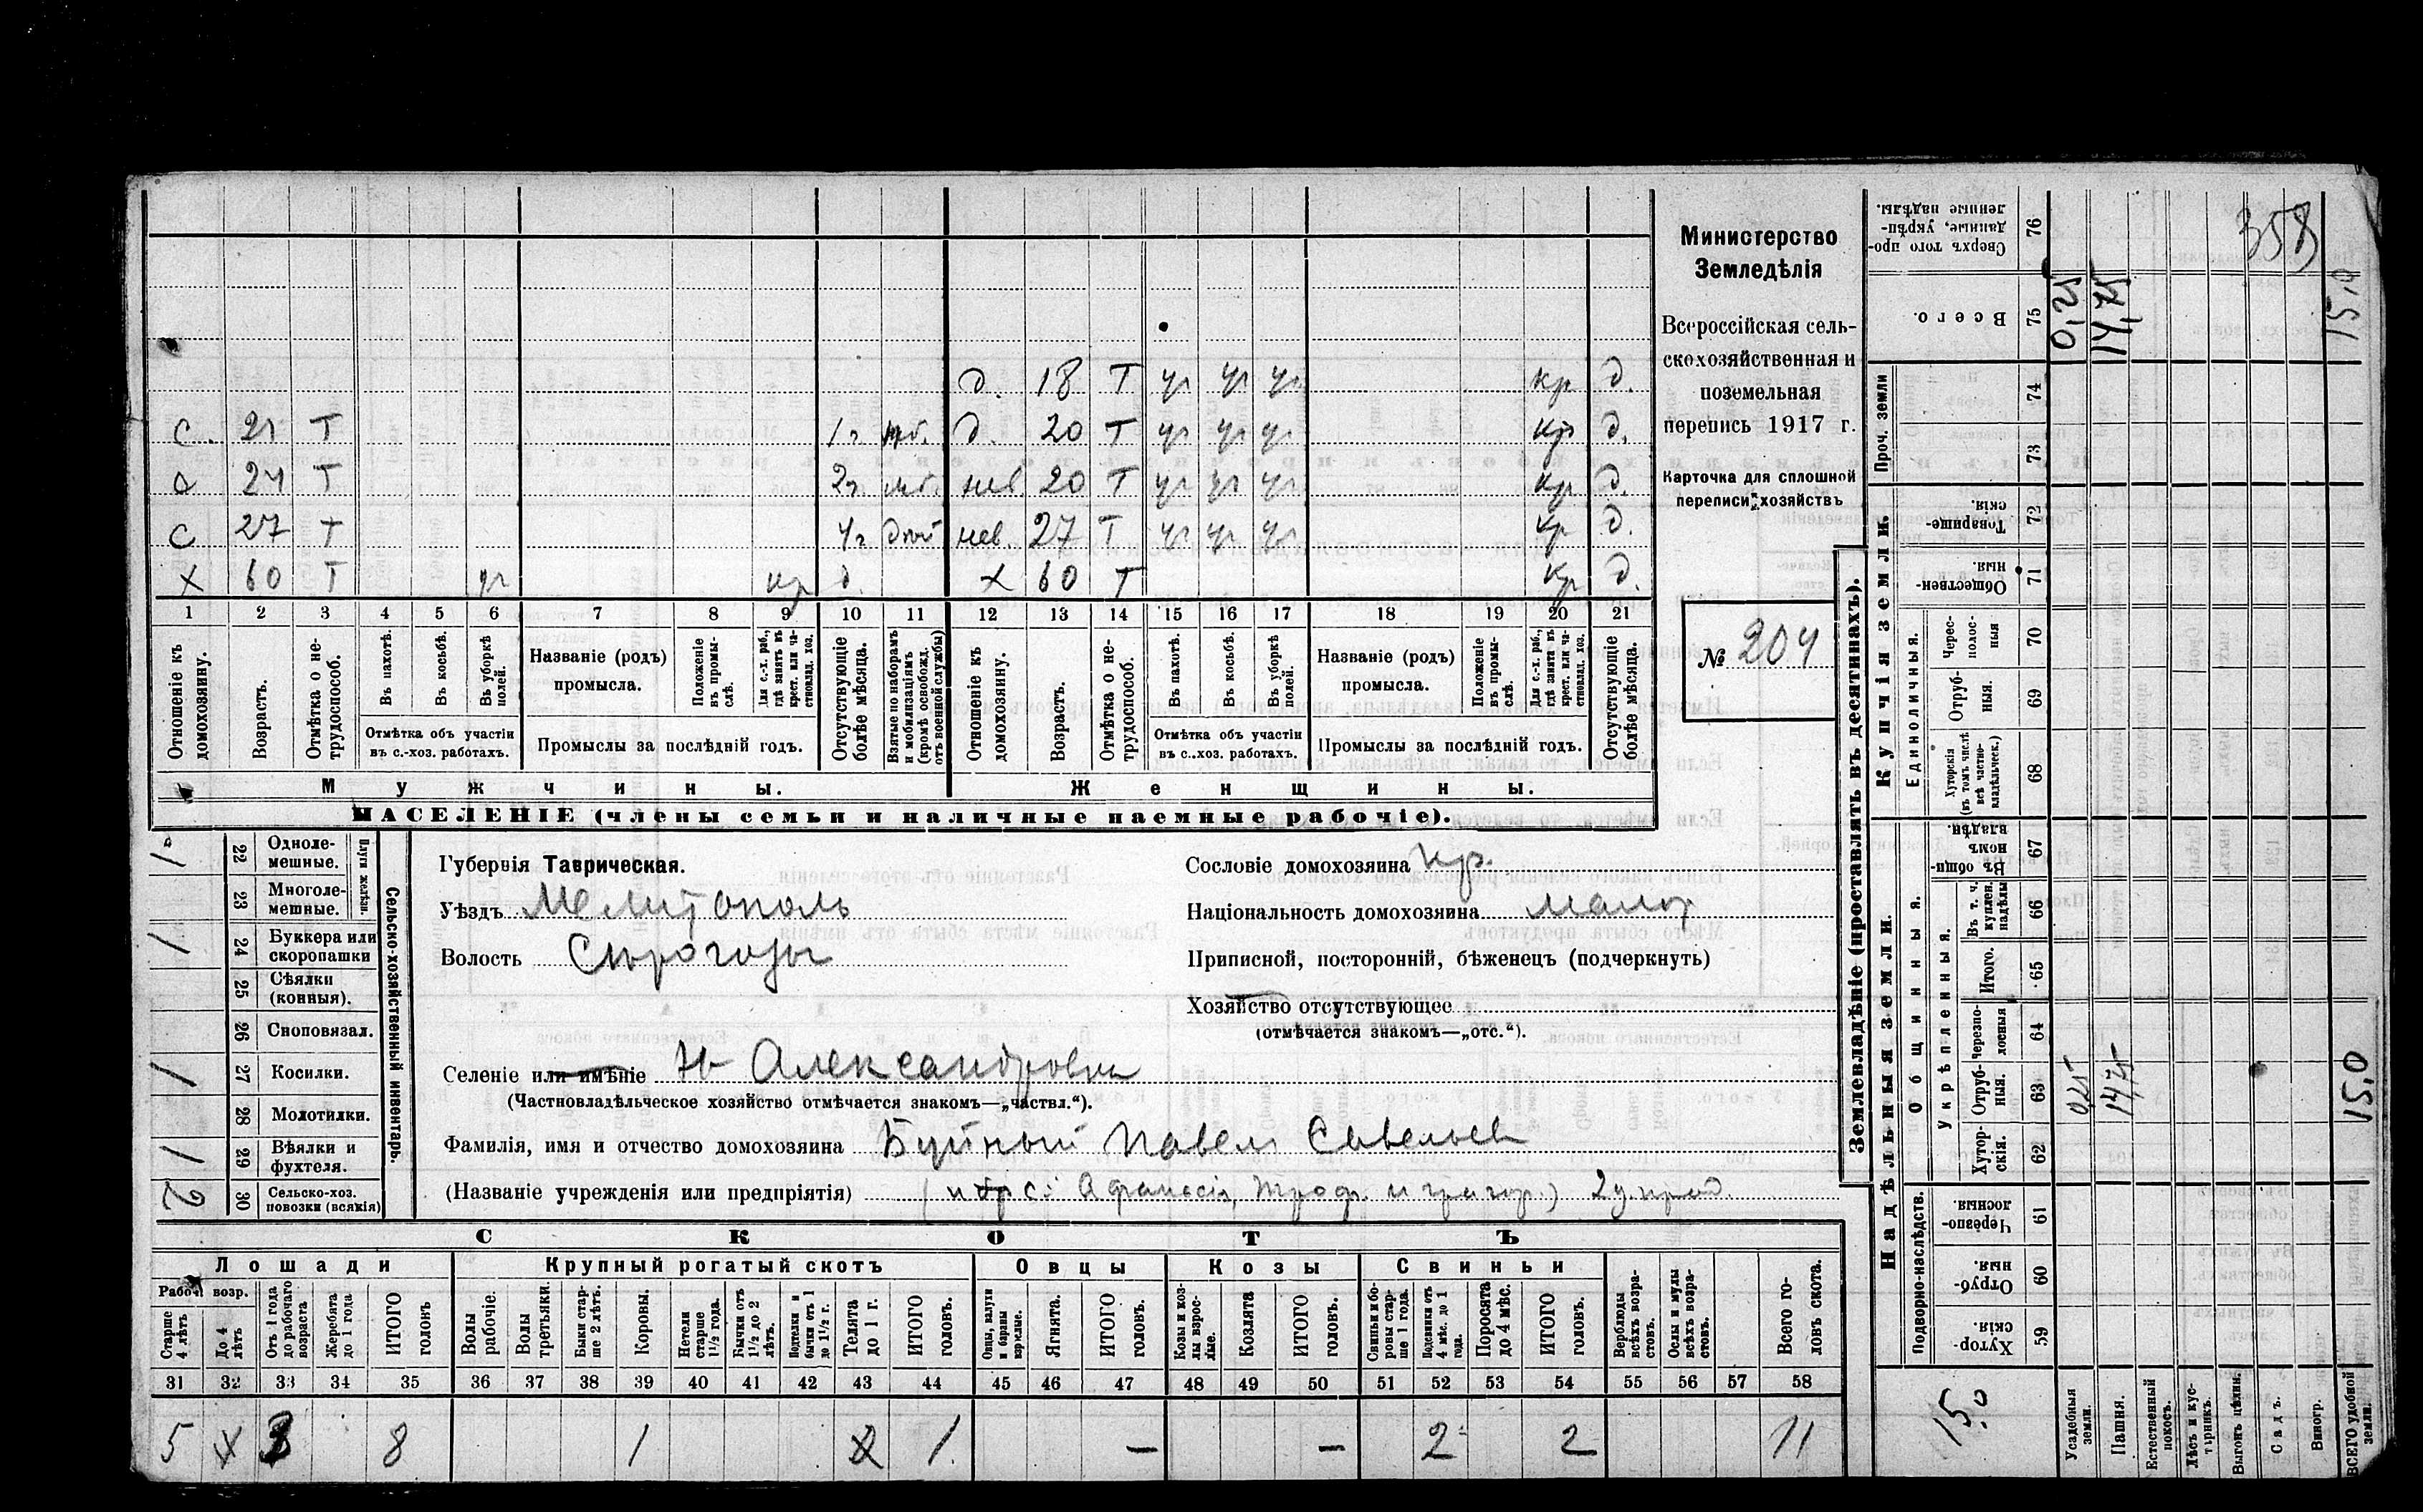 Министерство
Земледѣлія
Всероссійская сель-
скохозяйственная и
поземельная
перепись 1917 г.
Карточка для сплошной
переписи хозяйствъ
№ 204
358
д. 18 Т кр д.
с. 21 Т 1г д. 20 Т кр д.
24 Т 2г нев. 20 Т кр д.
с 27 Т нев. 27 Т кр д.
х 60 Т кр д. х 60 Т кр д.
1 2 3 4 5 6 7 8 9 10 11 12 13 14 15 16 17 18 19 20 21
Отношеніе къ домохозяину.
Возрастъ.
Отмѣтка о не-трудоспособ.
Въ пахотѣ.
Въ косьбѣ.
Въ уборкѣ полей.
Отмѣтка объ участіи
въ с.-хоз. работахъ.
Названіе (родъ)
промысла.
Положеніе въ промы-слѣ.
Для с.-х. раб., гдѣ занятъ въ крест. или ча-стновлад. хоз.
Промыслы за послѣдній годъ.
Отсутствующіе болѣе мѣсяца.
Взятые по наборамъ и мобилизаціямъ (кромѣ освобожд. отъ военной службы)
Отношеніе къ домохозяину.
Возрастъ.
Отмѣтка о не-трудоспособ.
Въ пахотѣ.
Въ косьбѣ.
Въ уборкѣ полей.
Отмѣтка объ участіи
въ с.-хоз. работахъ.
Названіе (родъ)
промысла.
Положеніе въ промы-слѣ.
Для с.-х. раб., гдѣ занята въ крест. или ча-стновлад. хоз.
Промыслы за послѣдній годъ.
Отсутствующіе болѣе мѣсяца.
Мужчины. Женщины.
НАСЕЛЕНІЕ (члены семьи и наличные наемные рабочіе).
Сельско-хозяйственный инвентарь.
Плуги желѣзн.
1 22 Одноле-мешные.
23 Многоле-мешные.
1 24 Буккера или скоропашки
25 Сѣялки (конныя).
26 Сноповязал.
1 27 Косилки.
28 Молотилки.
1 29 Вѣялки и фухтеля.
2 30 Сельско-хоз. повозки (всякія)
Губернія Таврическая.
Уѣздъ Мелитополь
Волость Сырогозы
Сословіе домохозяина кр.
Національность домохозяина малор
Приписной, посторонній, бѣженецъ (подчеркнуть)
Хозяйство отсутствующее
(отмѣчается знакомъ—„отс.“).
Селеніе или имѣніе Н- Александровка
(Частновладѣльческое хозяйство отмѣчается знакомъ—„частвл.“).
Фамилія, имя и отчество домохозяина Буйный Павел Савельев
(Названіе учрежденія или предпріятія)
СКОТЪ
Лошади Крупный рогатый скотъ Овцы Козы Свиньи
Рабоч. возр.
Старше 4 лѣтъ
До 4 лѣтъ
Отъ 1 года до рабочаго возраста
Жеребята до 1 года
ИТОГО головъ
Волы рабочіе.
Волы третьяки.
Быки стар-ше 2 лѣтъ.
Коровы.
Нетели старше 1½ года.
Бычки отъ 1½ до 2 лѣтъ.
Подтелки и бычки отъ 1 до 1½ г.
Телята до 1 г.
ИТОГО головъ.
Овцы, валухи и бараны взрослые.
Ягнята.
ИТОГО головъ.
Козы и коз-лы взрос-лые.
Козлята
ИТОГО головъ.
Свиньи и бо-ровы стар-ше 1 года.
Подсвинки отъ 4 мѣс. до 1 года.
Поросята до 4 мѣс.
ИТОГО головъ.
Верблюды всѣхъ возра-стовъ.
Ослы и мулы всѣхъ возра-стовъ.
Всего го-ловъ скота.
31 32 33 34 35 36 37 38 39 40 41 42 43 44 45 46 47 48 49 50 51 52 53 54 55 56 57 58
5 х 3 8 1 1 — — 2 2 11
Землевладѣніе (проставлять въ десятинахъ).
Купчія земли.
Надѣльныя земли.
Сверхъ того про-данные, укрѣп-ленные надѣлы. 76
Всего. 75 0,25 14,75 15,0
Проч. земли 74 73
Товарище-скія. 72
Обществен-ныя. 71
Единоличныя.
Черес-полос-ныя 70
Отруб-ныя. 69
Хуторскія (въ томъ числѣ всѣ частно-владѣльческ.) 68
Общинныя.
Въ общин-номъ владѣн. 67
Укрѣпленныя.
Въ т. ч. куплен. надѣлы 66
Итого. 65
Черезпо-лосныя 64
Отруб-ныя. 63 0,25 14,75 15,0
Хутор-скія. 62
Подворно-наслѣдств.
Черезпо-лосныя 61
Отруб-ныя 60
Хутор-скія. 59
15,0
Усадебныя земли.
Пашня.
Естественный покосъ.
Лѣсъ и кус-тарникъ.
Выгонъ цѣлин.
Садъ.
Виногр.
ВСЕГО удобной земли.